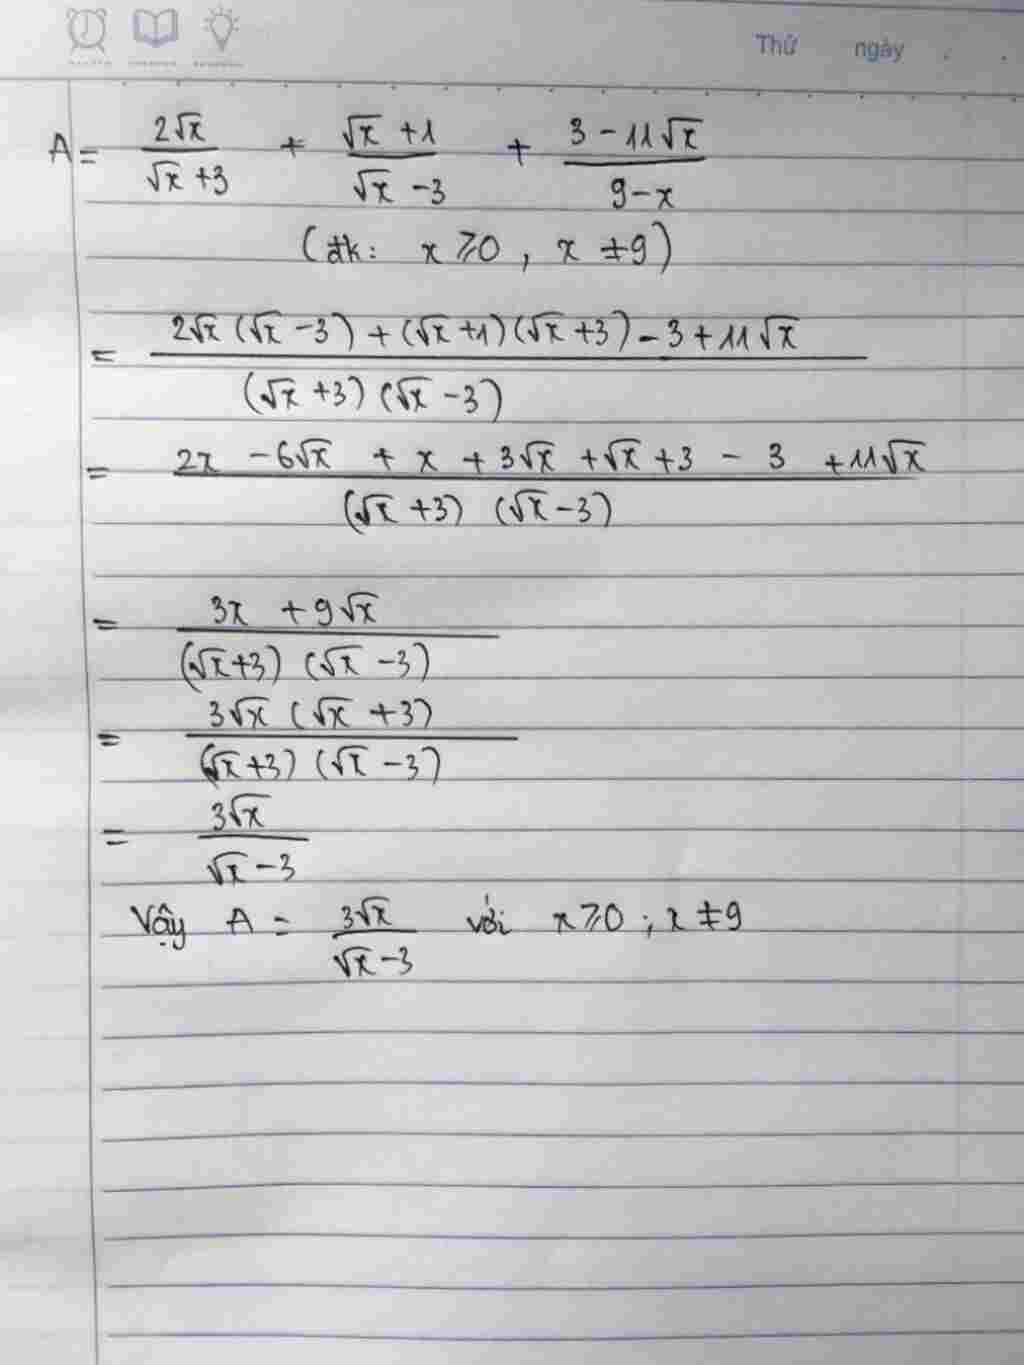 Thứ ngày
A = \frac{2\sqrt{x}}{\sqrt{x}+3} + \frac{\sqrt{x}+1}{\sqrt{x}-3} + \frac{3-11\sqrt{x}}{9-x}
(đk: x ⩾ 0, x ≠ 9)
= \frac{2\sqrt{x}(\sqrt{x}-3)+(\sqrt{x}+1)(\sqrt{x}+3)-3+11\sqrt{x}}{(\sqrt{x}+3)(\sqrt{x}-3)}
= \frac{2x-6\sqrt{x}+x+3\sqrt{x}+\sqrt{x}+3-3+11\sqrt{x}}{(\sqrt{x}+3)(\sqrt{x}-3)}
= \frac{3x+9\sqrt{x}}{(\sqrt{x}+3)(\sqrt{x}-3)}
= \frac{3\sqrt{x}(\sqrt{x}+3)}{(\sqrt{x}+3)(\sqrt{x}-3)}
= \frac{3\sqrt{x}}{\sqrt{x}-3}
Vậy A = \frac{3\sqrt{x}}{\sqrt{x}-3} với x ⩾ 0; x ≠ 9